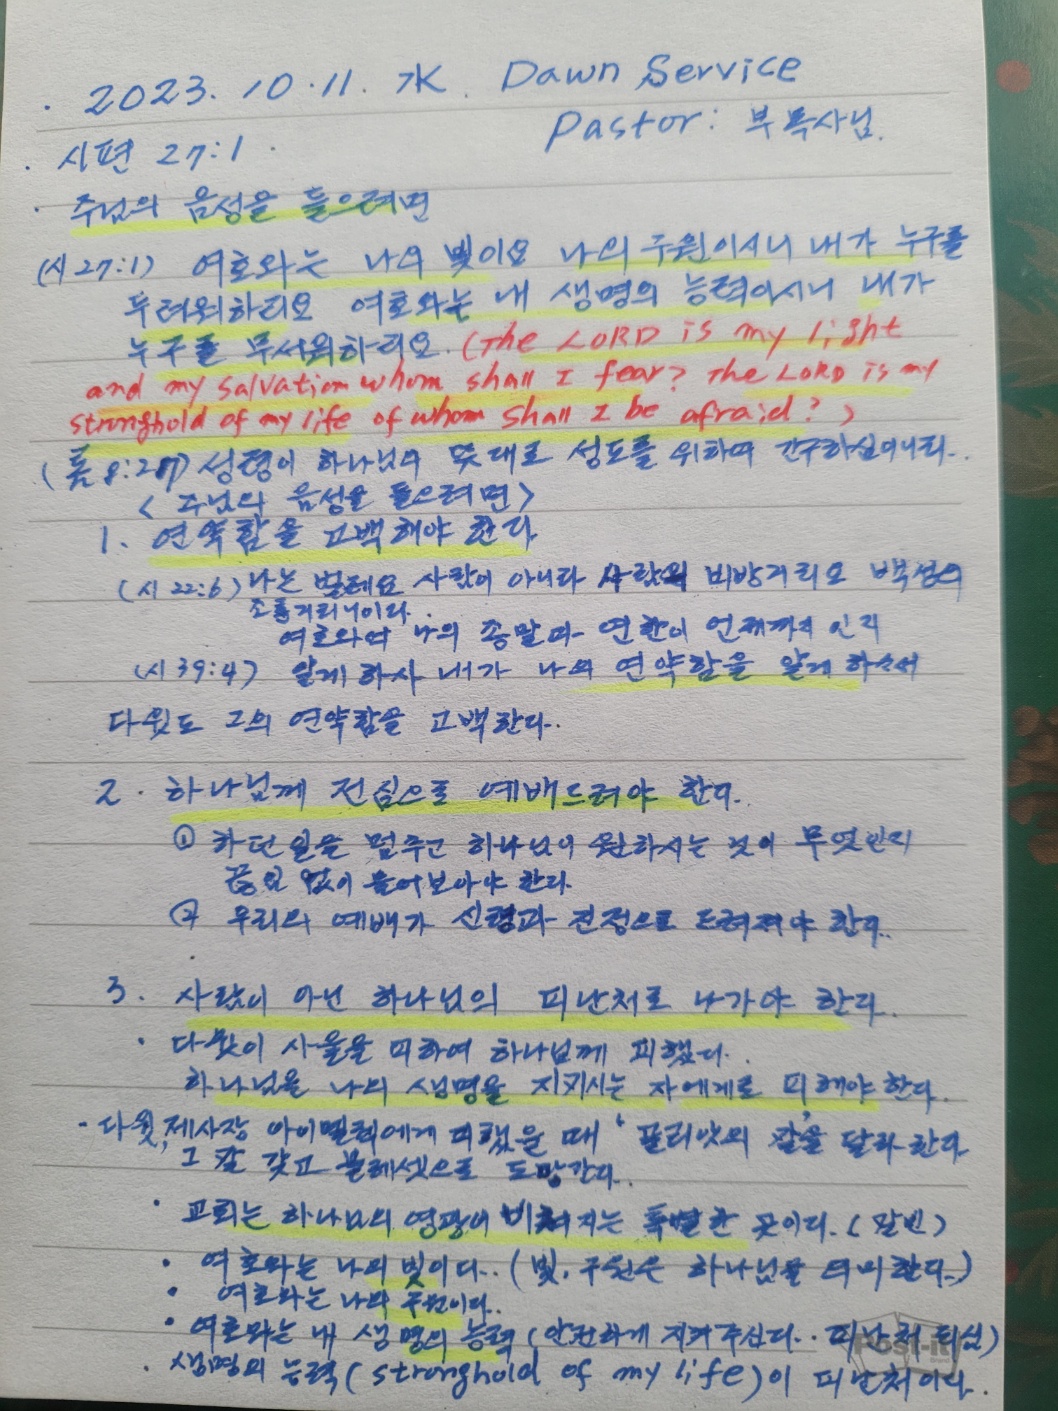 · 2023. 10. 11. 水. Dawn Service
Pastor: 부목사님.
· 시편 27:1 ·
· 주님의 음성을 들으려면
(시 27:1) 여호와는 나의 빛이요 나의 구원이시니 내가 누구를
두려워하리요 여호와는 내 생명의 능력이시니 내가
누구를 무서워하리요. (The LORD is my light
and my salvation whom shall I fear? The LORD is my
stronghold of my life of whom shall I be afraid?)
(롬 8:27) 성령이 하나님의 뜻대로 성도를 위하여 간구하심이니라..
< 주님의 음성을 들으려면 >
1. 연약함을 고백해야 한다
(시 22:6) 나는 벌레요 사람이 아니라 사람의 비방거리요 백성의
조롱거리니이다.
여호와여 나의 종말과 연한이 언제까지인지
(시 39:4) 알게 하사 내가 나의 연약함을 알게 하소서
다윗도 그의 연약함을 고백한다.
2. 하나님께 전심으로 예배드려야 한다.
① 하던 일을 멈추고 하나님이 원하시는 것이 무엇인지
끊임 없이 물어보아야 한다.
② 우리의 예배가 신령과 진정으로 드려져야 한다..
3. 사람이 아닌 하나님의 피난처로 나가야 한다.
· 다윗이 사울을 피하여 하나님께 피했다.
하나님을 나의 생명을 지키시는 자에게로 피해야 한다.
· 다윗, 제사장 아이멜렉에게 피했을 때 '골리앗의 칼'을 달라 한다
그 칼 갖고 블레셋으로 도망간다.
· 교회는 하나님의 영광이 비쳐지는 특별한 곳이다. (칼빈)
· 여호와는 나의 빛이다.. (빛. 구원은 하나님을 의미한다.)
· 여호와는 나의 구원이다..
· 여호와는 내 생명의 능력 (안전하게 지켜주신다.. 피난처 되심)
· 생명의 능력 (stronghold of my life)이 피난처이다.
Post-it